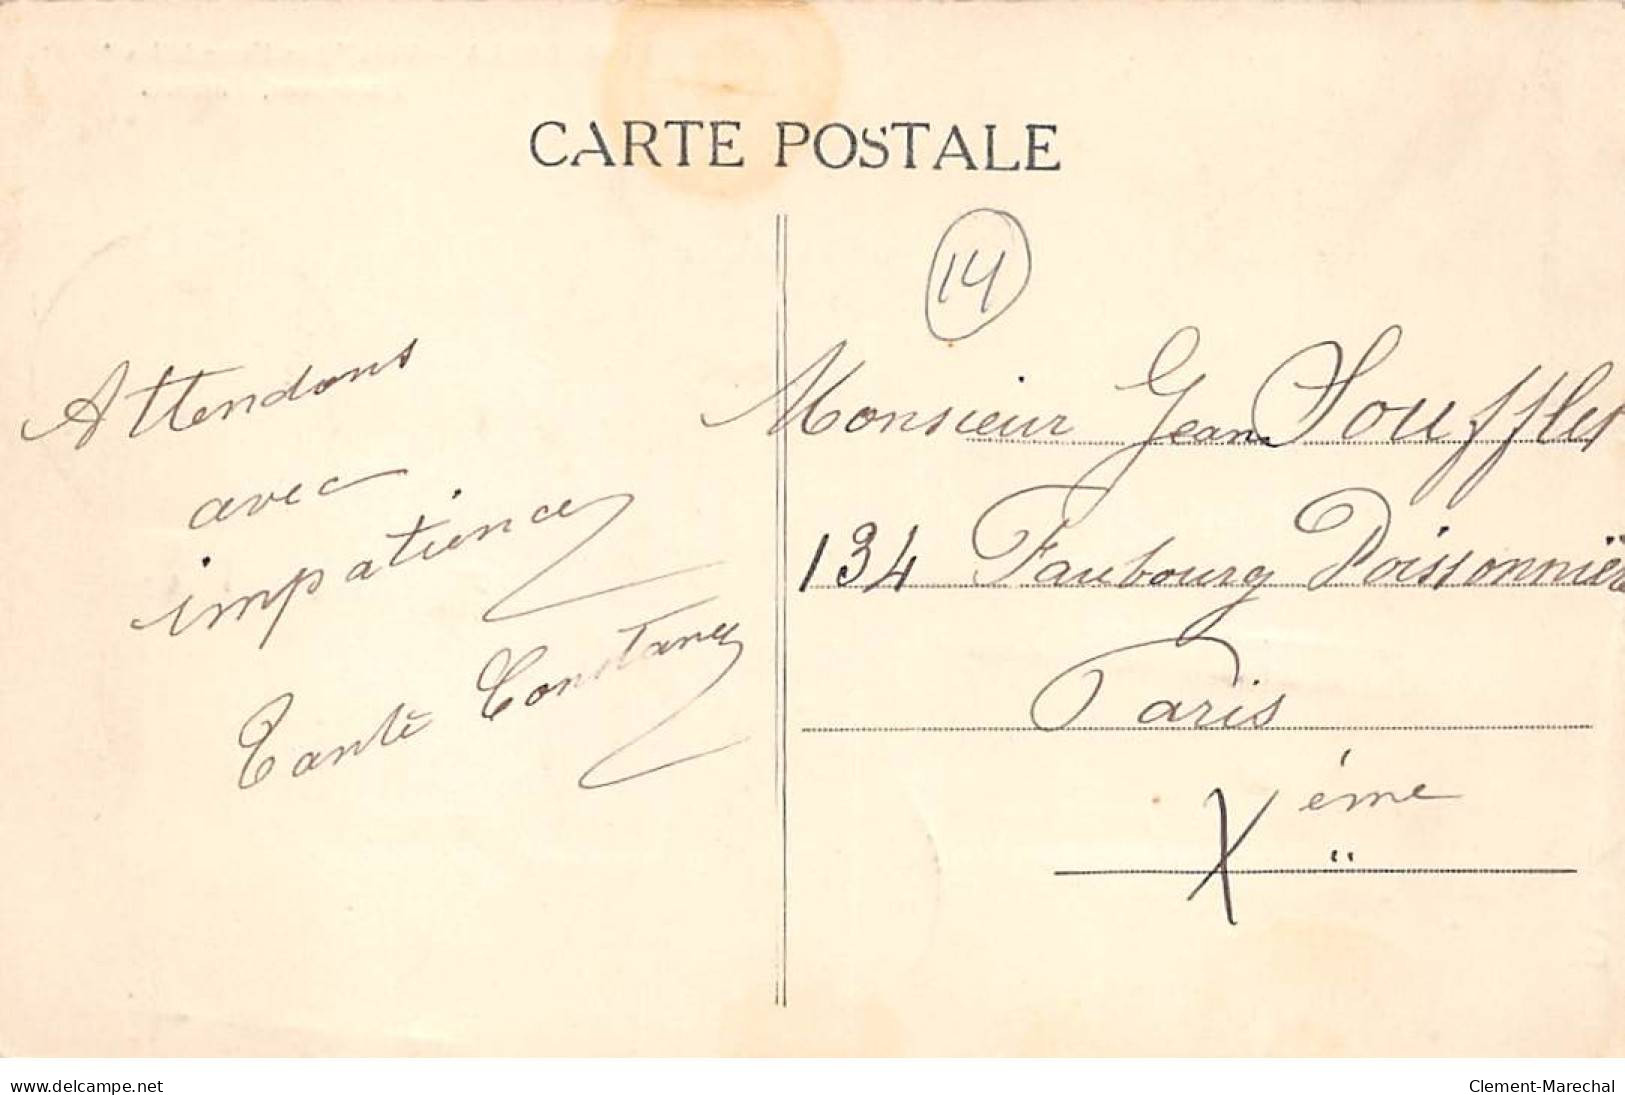 CARTE POSTALE
14
Attendons
avec
impatience
Tante Constance
Monsieur Jean Soufflet
134 Faubourg Poissonnière
Paris
Xéme
www.delcampe.net
Clement-Marechal